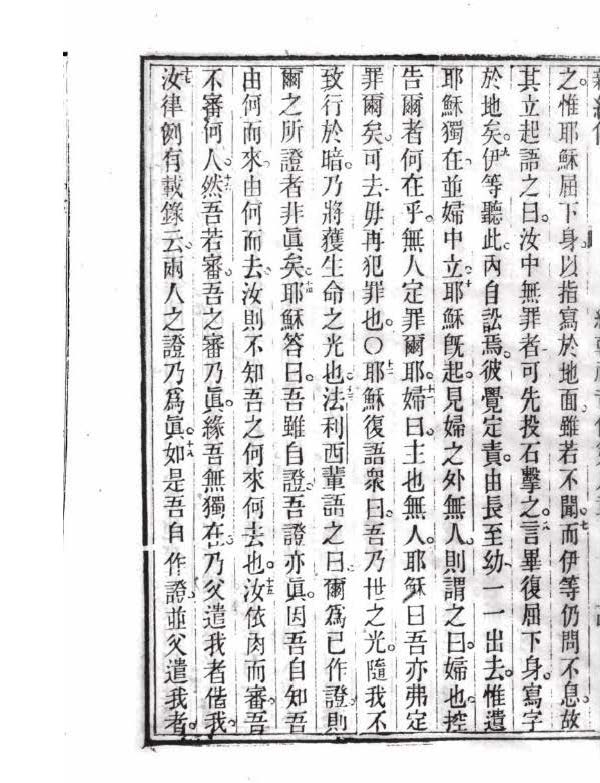 之惟耶穌屈下身。以指寫於地面雖若不聞。七而伊等仍問不息。故
其立起語之曰。汝中無罪者可先投石擊之。八言畢復屈下身。寫字
於地矣。九伊等聽此。內自訟焉。彼覺定責。由長至幼一一出去。惟遺
耶穌獨在並婦中立。十耶穌旣起見婦之外無人。則謂之曰。婦也。控
告爾者何在乎。無人定罪爾耶。十一婦曰。主也無人。耶穌曰吾亦弗定
罪爾矣。可去毋再犯罪也。〇耶穌復語衆曰。吾乃世之光。隨我不
致行於暗。乃將獲生命之光也。十三法利西輩語之曰爾爲己作證則
爾之所證者非眞矣。十四耶穌答曰。吾雖自證。吾證亦眞。因吾自知吾
由何而來。由何而去。汝則不知吾之何來何去也。十五汝依肉而審。吾
不審何人。十六然吾若審吾之審乃眞。緣吾無獨在。乃父遣我者偕我。
十七汝律例有載錄云。兩人之證乃爲眞。十八如是吾自作證。並父遣我者。